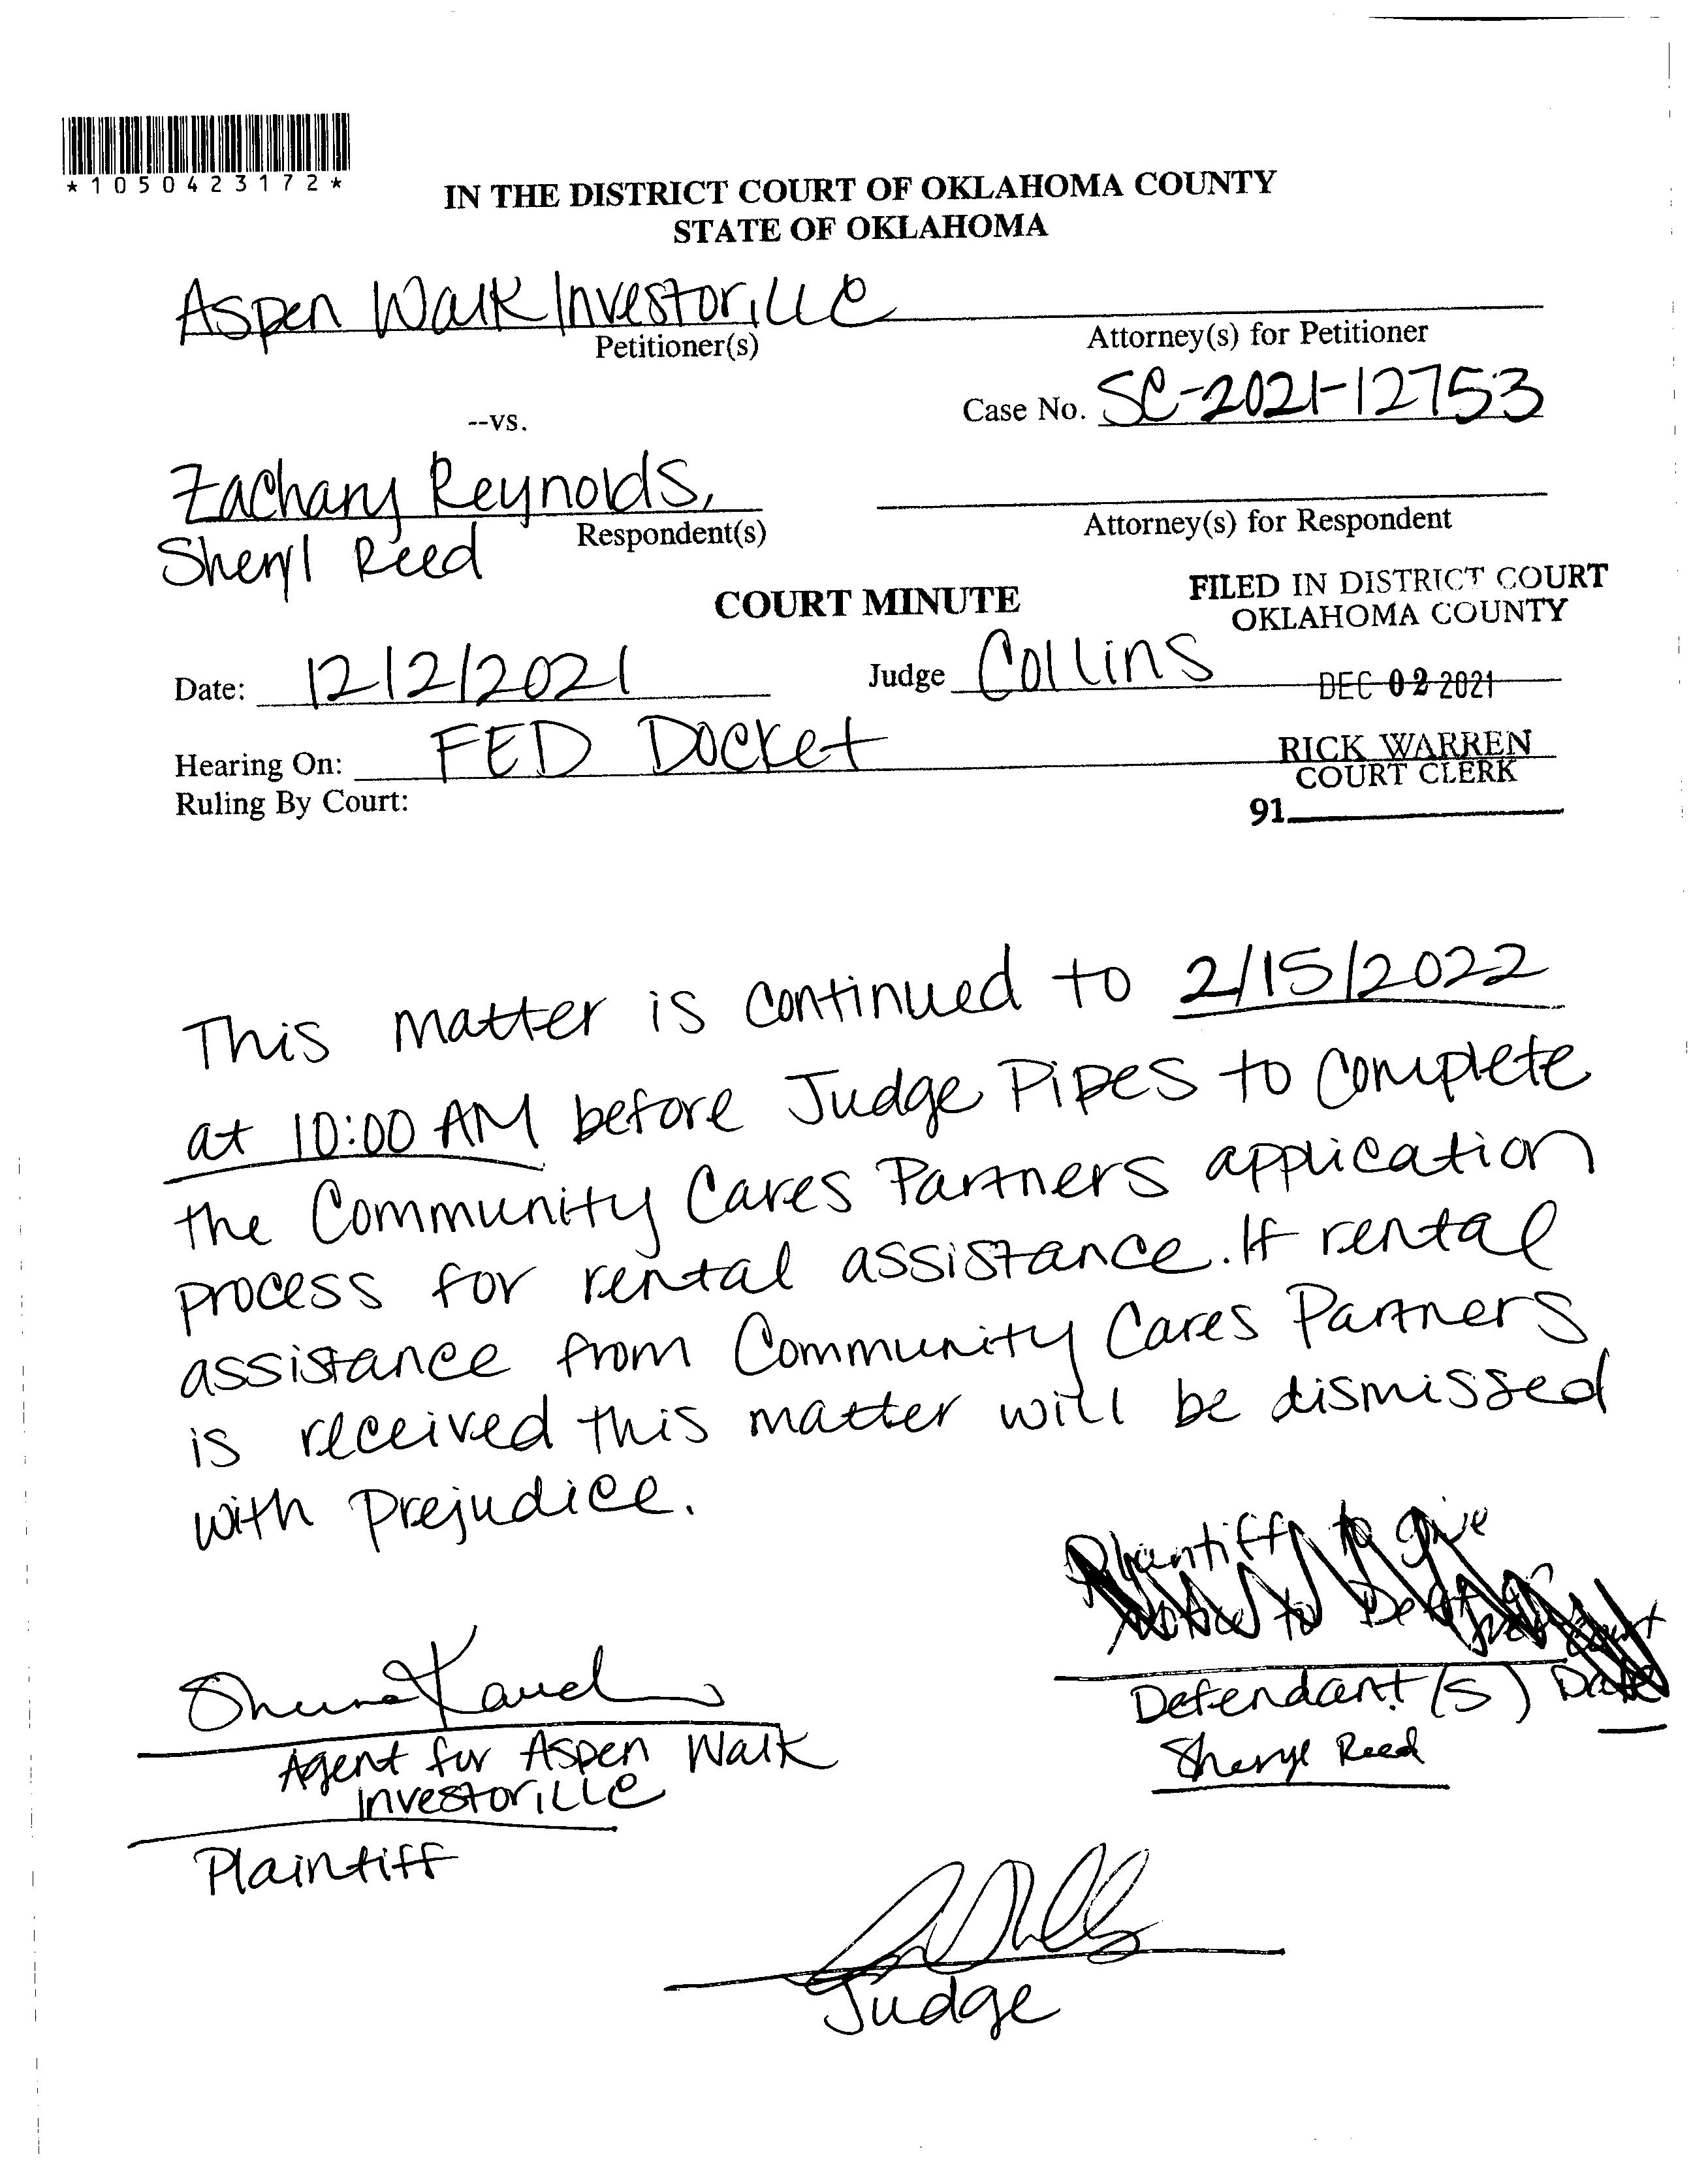 *1050423172*
IN THE DISTRICT COURT OF OKLAHOMA COUNTY
STATE OF OKLAHOMA
Aspen Walk Investor, LLC
Petitioner(s)
Attorney(s) for Petitioner
--vs.
Case No. SC-2021-12753
Zachary Reynolds,
Respondent(s)
Sheryl Reed
Attorney(s) for Respondent
COURT MINUTE
FILED IN DISTRICT COURT
OKLAHOMA COUNTY
Date: 12/2/2021
Judge Collins
DEC 02 2021
Hearing On: FED Docket
RICK WARREN
COURT CLERK
Ruling By Court:
91
This matter is continued to 2/15/2022
at 10:00 AM before Judge Pipes to complete
the Community Cares Partners application
process for rental assistance. If rental
assistance from Community Cares Partners
is received this matter will be dismissed
with prejudice.
Plaintiff to give
to
Defendant(s)
Sheryl Reed
Agent for Aspen Walk
Investor, LLC
Plaintiff
Judge